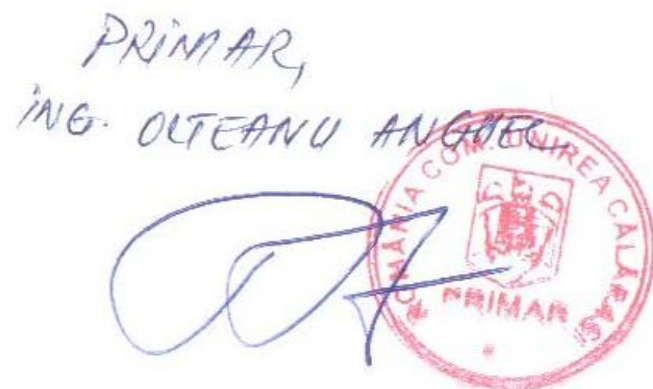 PRIMAR,
ING. OLTEANU ANGHEL
ROMÂNIA COM. UNIREA CĂLĂRAȘI
PRIMAR